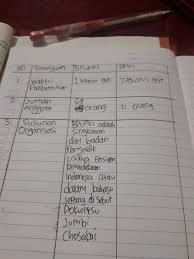 NO. Perangkat BPUPKI PPKI
1. Waktu Pembentukan 1 Maret 1945 7 Agustus 1945
2. Jumlah anggota orang 21 orang
3. Susunan Organisasi BPUPKI adalah
singkatan
dari badan
Penyelidik
usaha Persiapan
kemerdekaan
Indonesia atau
dalam bahasa
Jepang di sebut
Dokuritsu
Jumbi
Chosakai